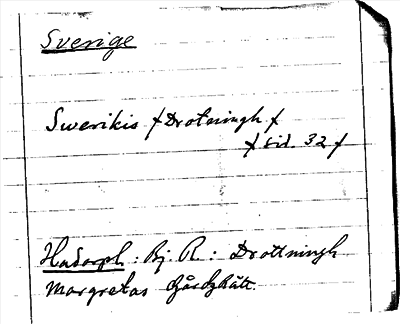 Sverige
Swerikis / Drotningh /
/ sid. 32 /
Hadorph : Bj. R. : Drottningh
Margretas Gårdzrätt.